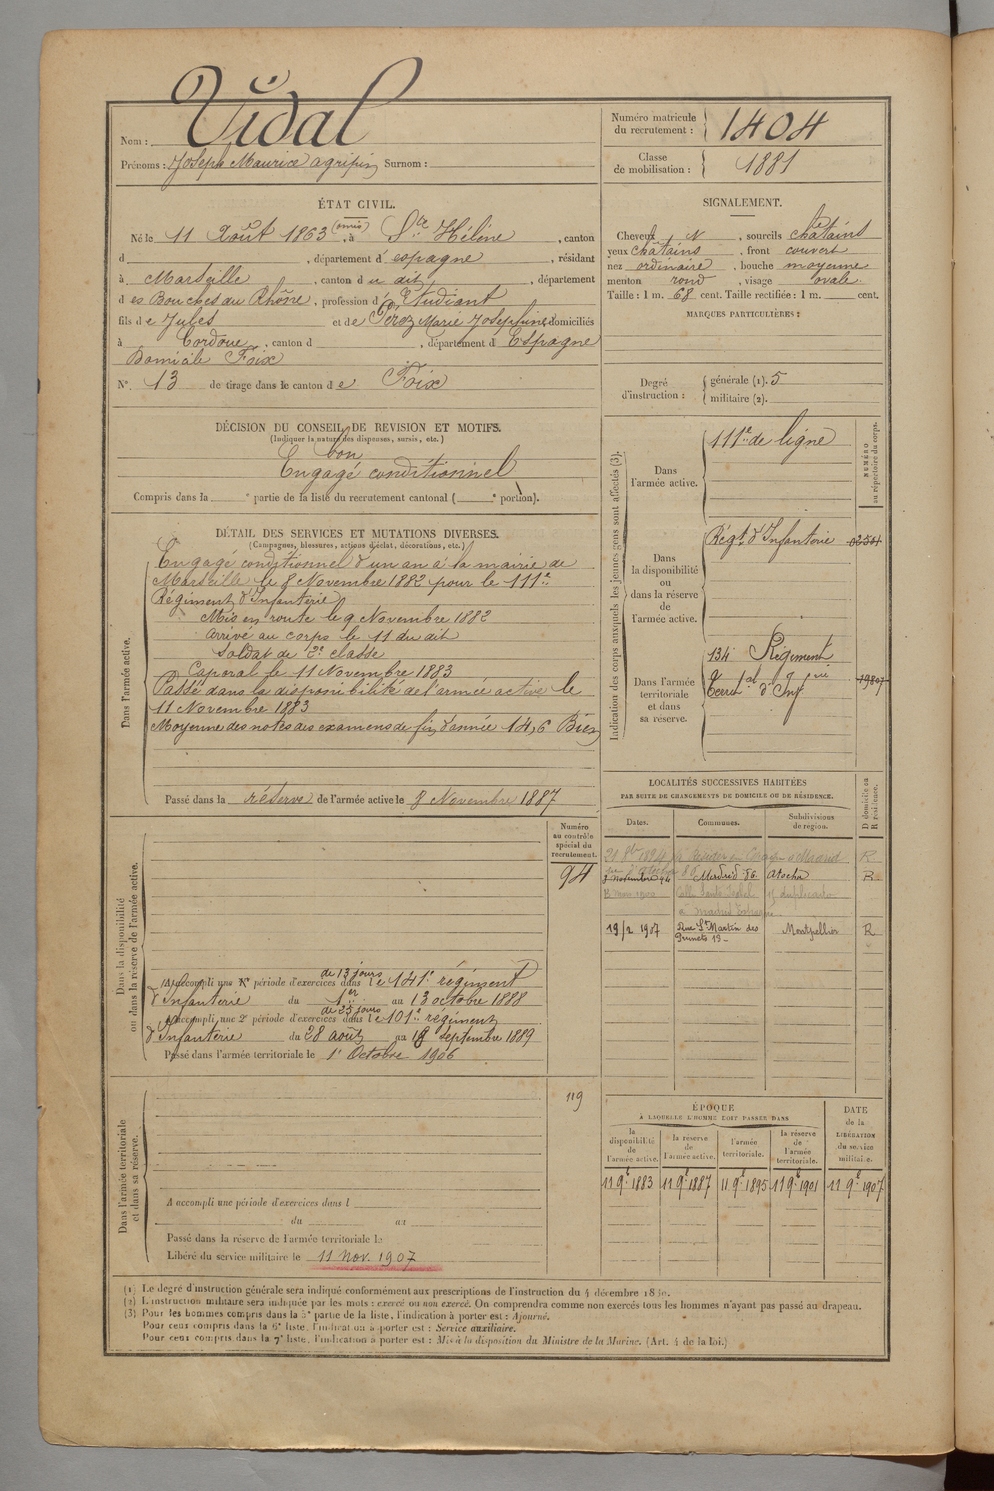 Nom : Vidal
Prénoms : Joseph Maurice agripin Surnom :
Numéro matricule du recrutement : 1404
Classe de mobilisation : 1881
ÉTAT CIVIL.
Né le 11 Août 1863 (omis), à Ste Hélène, canton
d , département d'espagne, résidant
à Marseille, canton du dit, département
des Bouches du Rhône, profession d'Etudiant
fils de Jules et de Pérez Marie Joséphine, domiciliés
à Cordoue, canton d , département d Espagne
Domicile Foix
N° 13 de tirage dans le canton de Foix
SIGNALEMENT.
Cheveux N , sourcils châtains
yeux châtains , front couvert
nez ordinaire , bouche moyenne
menton rond , visage ovale
Taille : 1 m. 68 cent. Taille rectifiée : 1 m. cent.
MARQUES PARTICULIÈRES :
Degré d'instruction : générale (1). 5
militaire (2).
DÉCISION DU CONSEIL DE REVISION ET MOTIFS.
(Indiquer la nature des dispenses, sursis, etc.)
bon
Engagé conditionnel
Compris dans la e partie de la liste du recrutement cantonal ( e portion).
DÉTAIL DES SERVICES ET MUTATIONS DIVERSES.
(Campagnes, blessures, actions d'éclat, décorations, etc.)
Dans l'armée active.
Engagé conditionnel d'un an à la mairie de
Marseille le 8 Novembre 1882 pour le 111e
Régiment d'Infanterie
Mis en route le 9 Novembre 1882
Arrivé au corps le 11 du dit
Soldat de 2e classe
Caporal le 11 Novembre 1883
Passé dans la disponibilité de l'armée active le
11 Novembre 1883
Moyenne des notes des examens de fin d'année 14,6 Bien
Passé dans la réserve de l'armée active le 8 Novembre 1887
Indication des corps auxquels les jeunes gens sont affectés (3).
NUMÉRO au répertoire du corps.
Dans l'armée active.
111e de ligne
Dans la disponibilité ou dans la réserve de l'armée active.
Régt d'Infanterie
Dans l'armée territoriale et dans sa réserve.
134 Régiment
Territal d'Infrie
19807
LOCALITÉS SUCCESSIVES HABITÉES
PAR SUITE DE CHANGEMENTS DE DOMICILE OU DE RÉSIDENCE.
D domicile ou R résidence.
Dates. Communes. Subdivisions de région.
Madrid 86 Atocha R
19/2 1907 Rue St Martin des Prunets 19 Montpellier R
Dans la disponibilité ou dans la réserve de l'armée active.
Numéro au contrôle spécial du recrutement.
94
A accompli une 1e période d'exercices de 13 jours dans le 141e régiment
d'Infanterie du 1er au 13 octobre 1888
A accompli une 2e période d'exercices de 25 jours dans le 101e régiment
d'Infanterie du 28 août au 18 septembre 1889
Passé dans l'armée territoriale le 1r Octobre 1906
Dans l'armée territoriale et dans sa réserve.
119
A accompli une période d'exercices dans l
du au
Passé dans la réserve de l'armée territoriale le
Libéré du service militaire le 11 Nov. 1907
ÉPOQUE
À LAQUELLE L'HOMME DOIT PASSER DANS
la disponibilité de l'armée active. la réserve de l'armée active. l'armée territoriale. la réserve de l'armée territoriale. DATE de la LIBÉRATION du service militaire.
11 9e 1883 11 9e 1887 11 9e 1895 11 9e 1901 11 9e 1907
(1) Le degré d'instruction générale sera indiqué conformément aux prescriptions de l'instruction du 4 décembre
(2) L'instruction militaire sera indiquée par les mots : exercé ou non exercé. On comprendra comme non exercés tous les hommes n'ayant pas passé au drapeau.
(3) Pour les hommes compris dans la 5e partie de la liste, l'indication à porter est : Ajourné.
Pour ceux compris dans la 6e liste, l'indication à porter est : Service auxiliaire.
Pour ceux compris dans la 7e liste, l'indication à porter est : Mis à la disposition du Ministre de la Marine. (Art. 4 de la loi.)